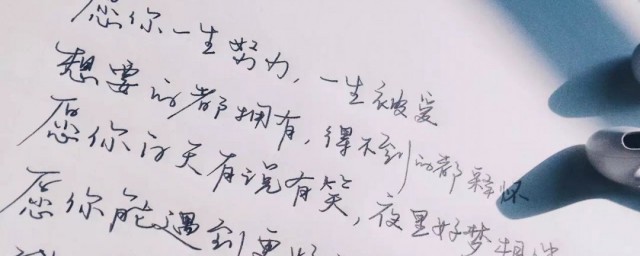 愿你一生努力，一生被爱
想要的都拥有，得不到的都释怀
愿你白天有说有笑，夜里好梦相伴
愿你能遇到更好